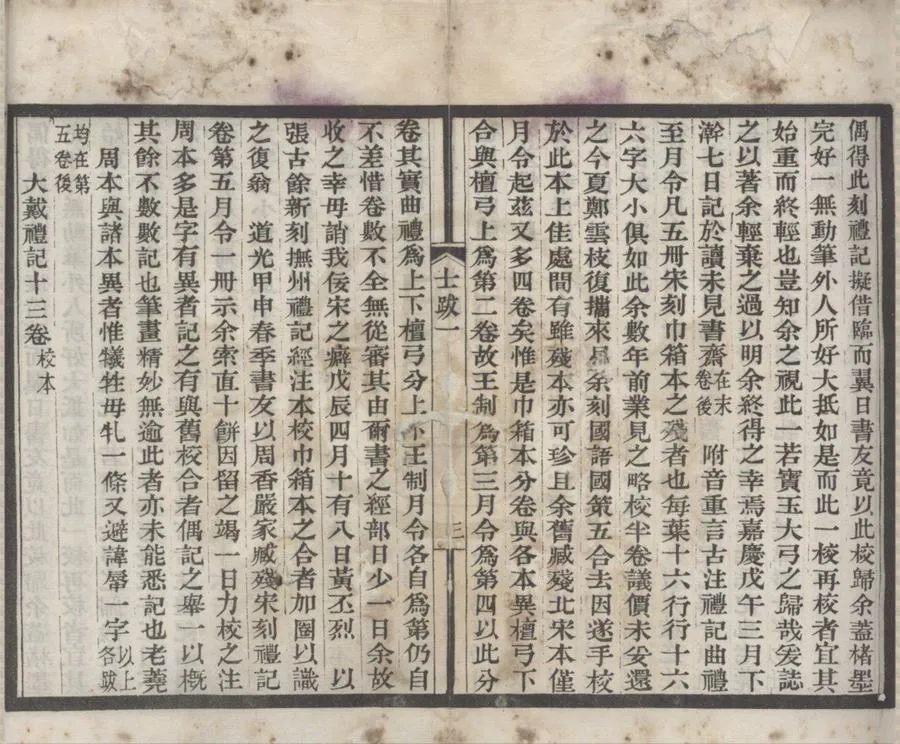 偶得此刻禮記擬借臨而翼日書友竟以此校歸余蓋楮墨
完好一無動筆外人所好大抵如是而此一校再校者宜其
始重而終輕也豈知余之視此一若寶玉大弓之歸哉爰誌
之以著余輕棄之過以明余終得之幸焉嘉慶戊午三月下
澣七日記於讀未見書齋在末卷後 附音重言古注禮記曲禮
至月令凡五冊宋刻巾箱本之殘者也每葉十六行行十六
六字大小俱如此余數年前業見之略校半卷議價未妥還
之今夏鄭雲枝復攜來易余刻國語國策五合去因遂手校
於此本上佳處間有雖殘本亦可珍且余舊臧殘北宋本僅
月令起茲又多四卷矣惟是巾箱本分卷與各本異檀弓下
合與檀弓上爲第二卷故王制爲第三月令爲第四以此分
士跋一
三
卷其實曲禮爲上下檀弓分上下王制月令各自爲第仍自
不差惜卷數不全無從審其由爾書之經部日少一日余故
收之幸毋誚我佞宋之癖戊辰四月十有八日黃丕烈 以
張古餘新刻撫州禮記經注本校巾箱本之合者加圈以識
之復翁 道光甲申春季書友以周香嚴家臧殘宋刻禮記
卷第五月令一冊示余索直十餅因留之竭一日力校之注
周本多是字有異者記之有與舊校合者偶記之舉一以概
其餘不數數記也筆畫精妙無逾此者亦未能悉記也老蕘
周本與諸本異者惟犧牲毋牝一條又避諱脣一字以上各跋
均在第五卷後
大戴禮記十三卷校本